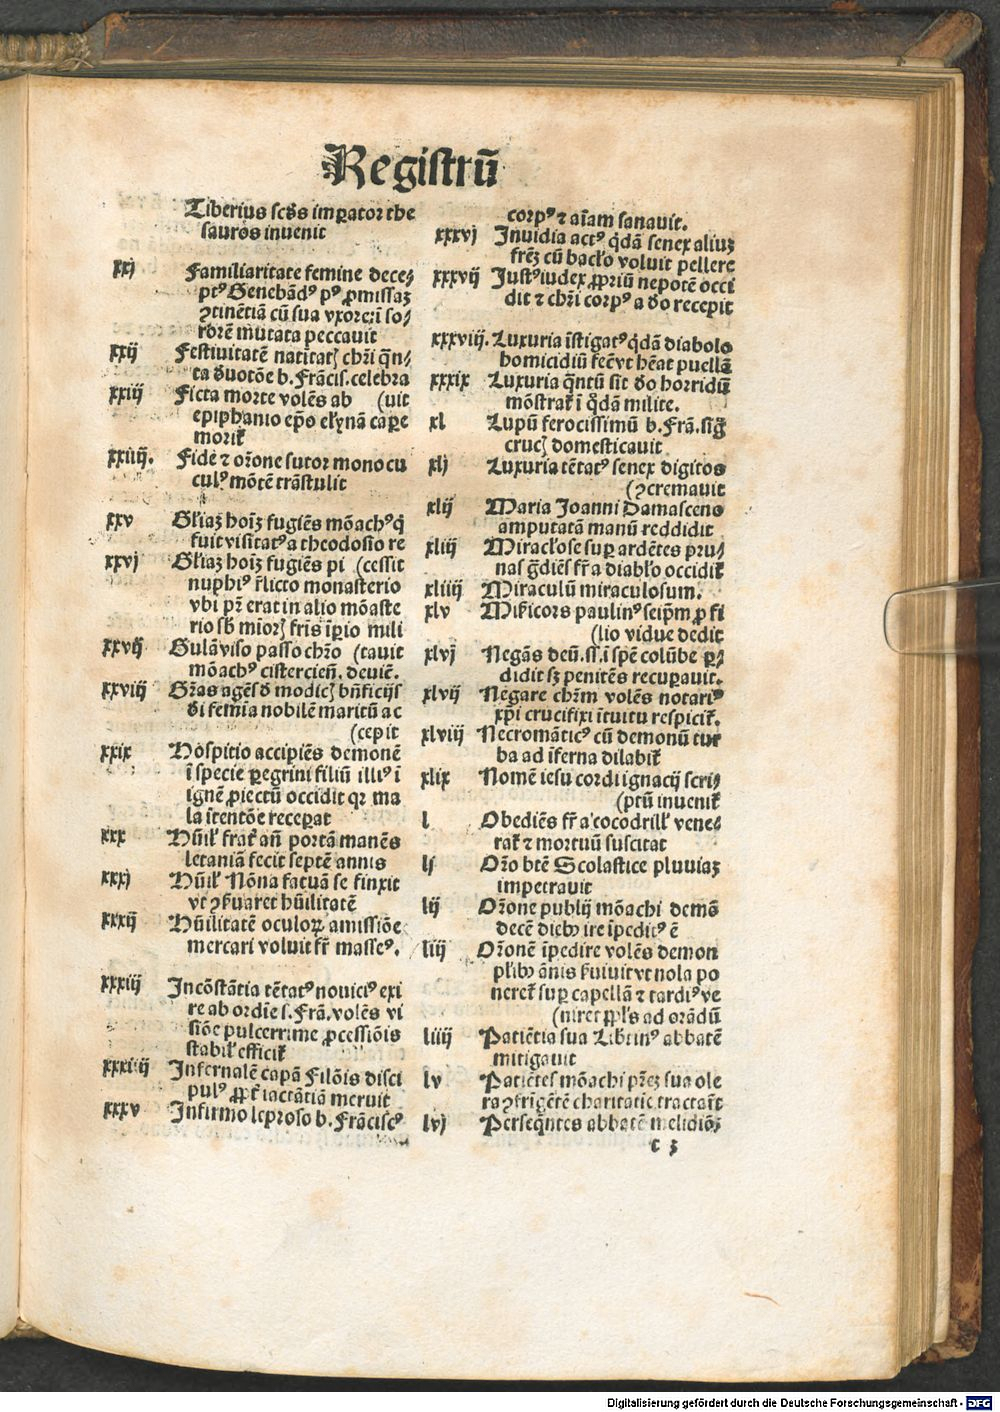 Registrū
Tiberius scd̄s imꝑator the
sauros invenit
xxj Familiaritate femine dece⸗
ptꝰ Genebād̄ꝰ pꝰ ꝓmissaꝫ
ꝯtinētiā cū sua vxore: ī so⸗
rorē mutata peccauit
xxij Festiuitatē natītatꝭ chr̄i q̄n⸗
ta d̄uotōe b. Frācis. celebra
xxiij Ficta morte volēs ab (uit
epiphanio ep̄o elẏnā caꝑe
morit᷑
xxiiij. Fide ⁊ or̄one sutor monocu
culꝰ mōtē trāstulit
xxv Gl̄iaꝫ hoīꝫ fugiēs mōachꝰ q̄
fuit visitatꝰ a theodosio re
xxvj Gl̄iaꝫ hoīꝫ fugiēs pi (cessit
nuphiꝰ r̄licto monasterio
vbi pr̄ erat in alio mōaste
rio sb̄ mioꝝ fr̄is īꝑio mili
xxvij Gulā viso passo chr̄o (tauit
mōachꝰ cistercien̄. deuic̄.
xxviij Gr̄as agēs d̄ modicꝭ bn̄ficijs
d̄i femīa nobilē maritū ac
(cepit
xxix Hospitio accipiēs demonē
ī specie ꝑegrini filiū illiꝰ ī
ignē ꝓiectū occidit qꝛ ma
la ītentōe receꝑat
xxx Hūil᷑ frat᷑ an̄ portā manēs
letaniā fecit septē annis
xxxj Hūil᷑ Nōna fatuā se finxit
vt ꝯẜuaret hūilitatē
xxxij Hūilitatē oculoꝝ amissiōe
mercari voluit fr̄ masseꝰ.
xxxiij Incōstātia tētatꝰ nouiciꝰ exi
re ab ordīe s. Frā. volēs vi
siōe pulcerrime ꝓcessiōis
stabil᷑ efficit᷑
xxxiiij Infernalē capā Filōis disci
pulꝰ ꝓpt᷑ iactātiā meruit
xxxv Infirmo leproso b. Frāciscꝰ
corpꝰ ⁊ aīam sanauit.
xxxvj Inuidia actꝰ q̄dā senex aliuꝫ
frēꝫ cū bacl̄o voluit pellere
xxxvij Justꝰ iudex ꝓpriū nepotē occi
dit ⁊ chr̄i corpꝰ a d̄o recepit
xxxviij. Luxuria īstigatꝰ q̄dā diabolo
homicidiū fec̄ vt hēat puellā
xxxix Luxuria q̄ntū sit d̄o horridū
mōstrat᷑ ī q̄dā milite.
xl Lupū ferocissimū b. Frā. siḡ
crucꝭ domesticauit
xlj Luxuria tētatꝰ senex digitos
(ꝯcremauit
xlij Maria Joanni Damasceno
amputatā manū reddidit
xliij Miracl̄ose suꝑ ardētes pru⸗
nas ḡdiēs fr̄ a diabl̄o occidit᷑
xliiij Miraculū miraculosum.
xlv Mīẜicors paulinꝰ seip̄m ꝓ fi
(lio vidue dedit
xlvj Negās deū. ss. ī spē colūbe ꝑ⸗
didit sꝫ penitēs recuꝑauit.
xlvij Negare chr̄m volēs notariꝰ
xp̄i crucifixi ītuitu respicit᷑.
xlviij Necromāticꝰ cū demonū tur
ba ad īferna dilabit᷑
xlix Nomē iesu cordi ignacij scri⸗
(ptū inuenit᷑
l Obediēs fr̄ a cocodrill᷑ vene⸗
rat᷑ ⁊ mortuū suscitat
lj Or̄o btē Scolastice pluuiaꝫ
impetrauit
lij Or̄one publij mōachi demō
decē diebꝰ ire īpeditꝰ ē
liij Or̄onē īpedire volēs demon
pl̄ibꝰ ānis ẜuiuit vt nola po
neret᷑ suꝑ capellā ⁊ tardiꝰ ve
(niret ppl̄s ad orādū
liiij Patiētia sua Libtinꝰ abbatē
mitigauit
lv Patiētes mōachi pr̄eꝫ sua ole
ra ꝯfrīgētē charitatie tractar̄t
lvj Perseq̄ntes abbatē melidiōꝫ
c 3
Digitalisierung gefördert durch die Deutsche Forschungsgemeinschaft - DFG